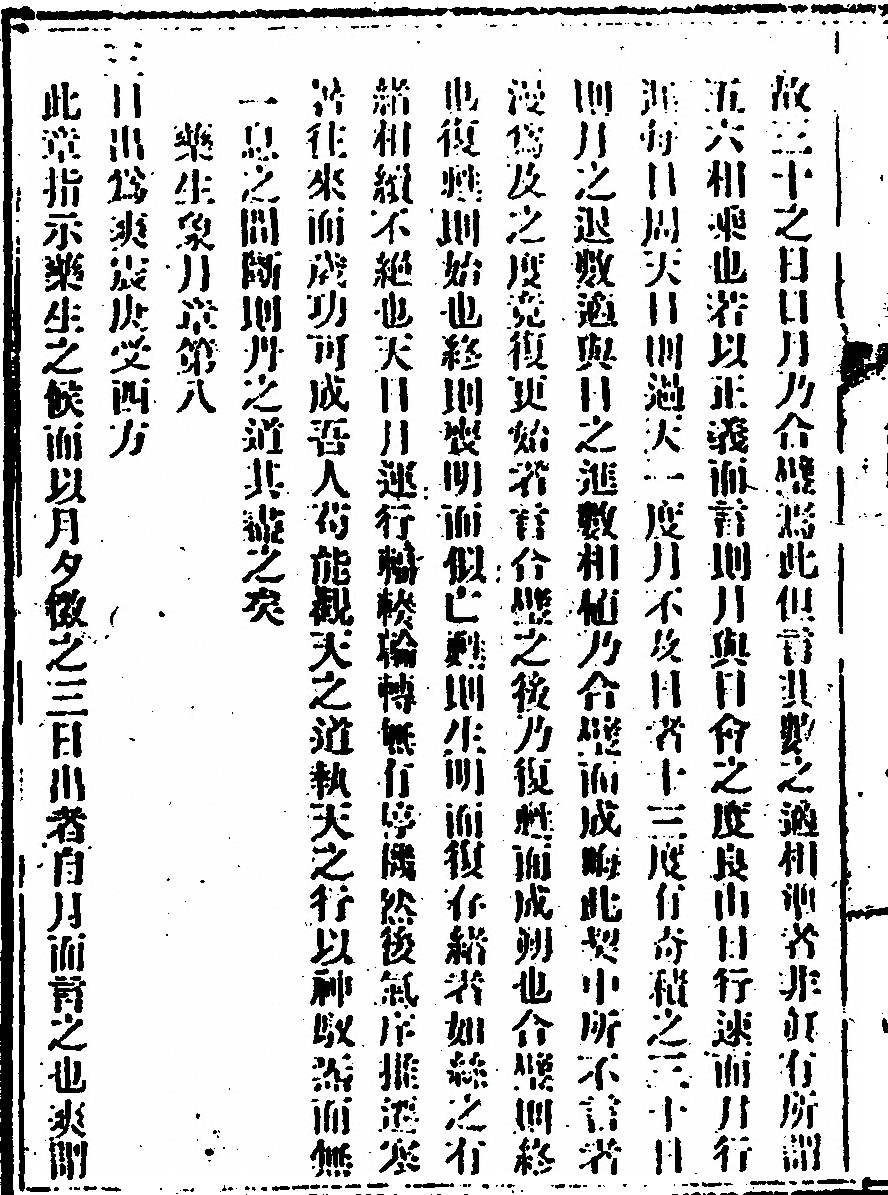 故三十之日日月乃合璧焉此但言其數之適相迊者非眞有所謂
五六相乘也若以正義而言則月與日會之度良由日行速而月行
遲每日周天日則過天一度月不及日者十三度有奇積之三十日
則月之退數適與日之進數相値乃合璧而成晦此契中所不言者
漫爲及之度竟復更始者言合璧之後乃復甦而成朔也合璧則終
也復甦則始也終則喪明而似亡甦則生明而復存緒者如絲之有
緒相續不絕也天日月運行輪轉無有停機然後氣序推遷寒
暑往來而歲功可成吾人苟能觀天之道執天之行以神馭炁而無
一息之間斷則丹之道其盡之矣
藥生象月章第八
三日出爲爽震庚受西方
此章指示藥生之候而以月夕徵之三日出者自月而言之也爽謂